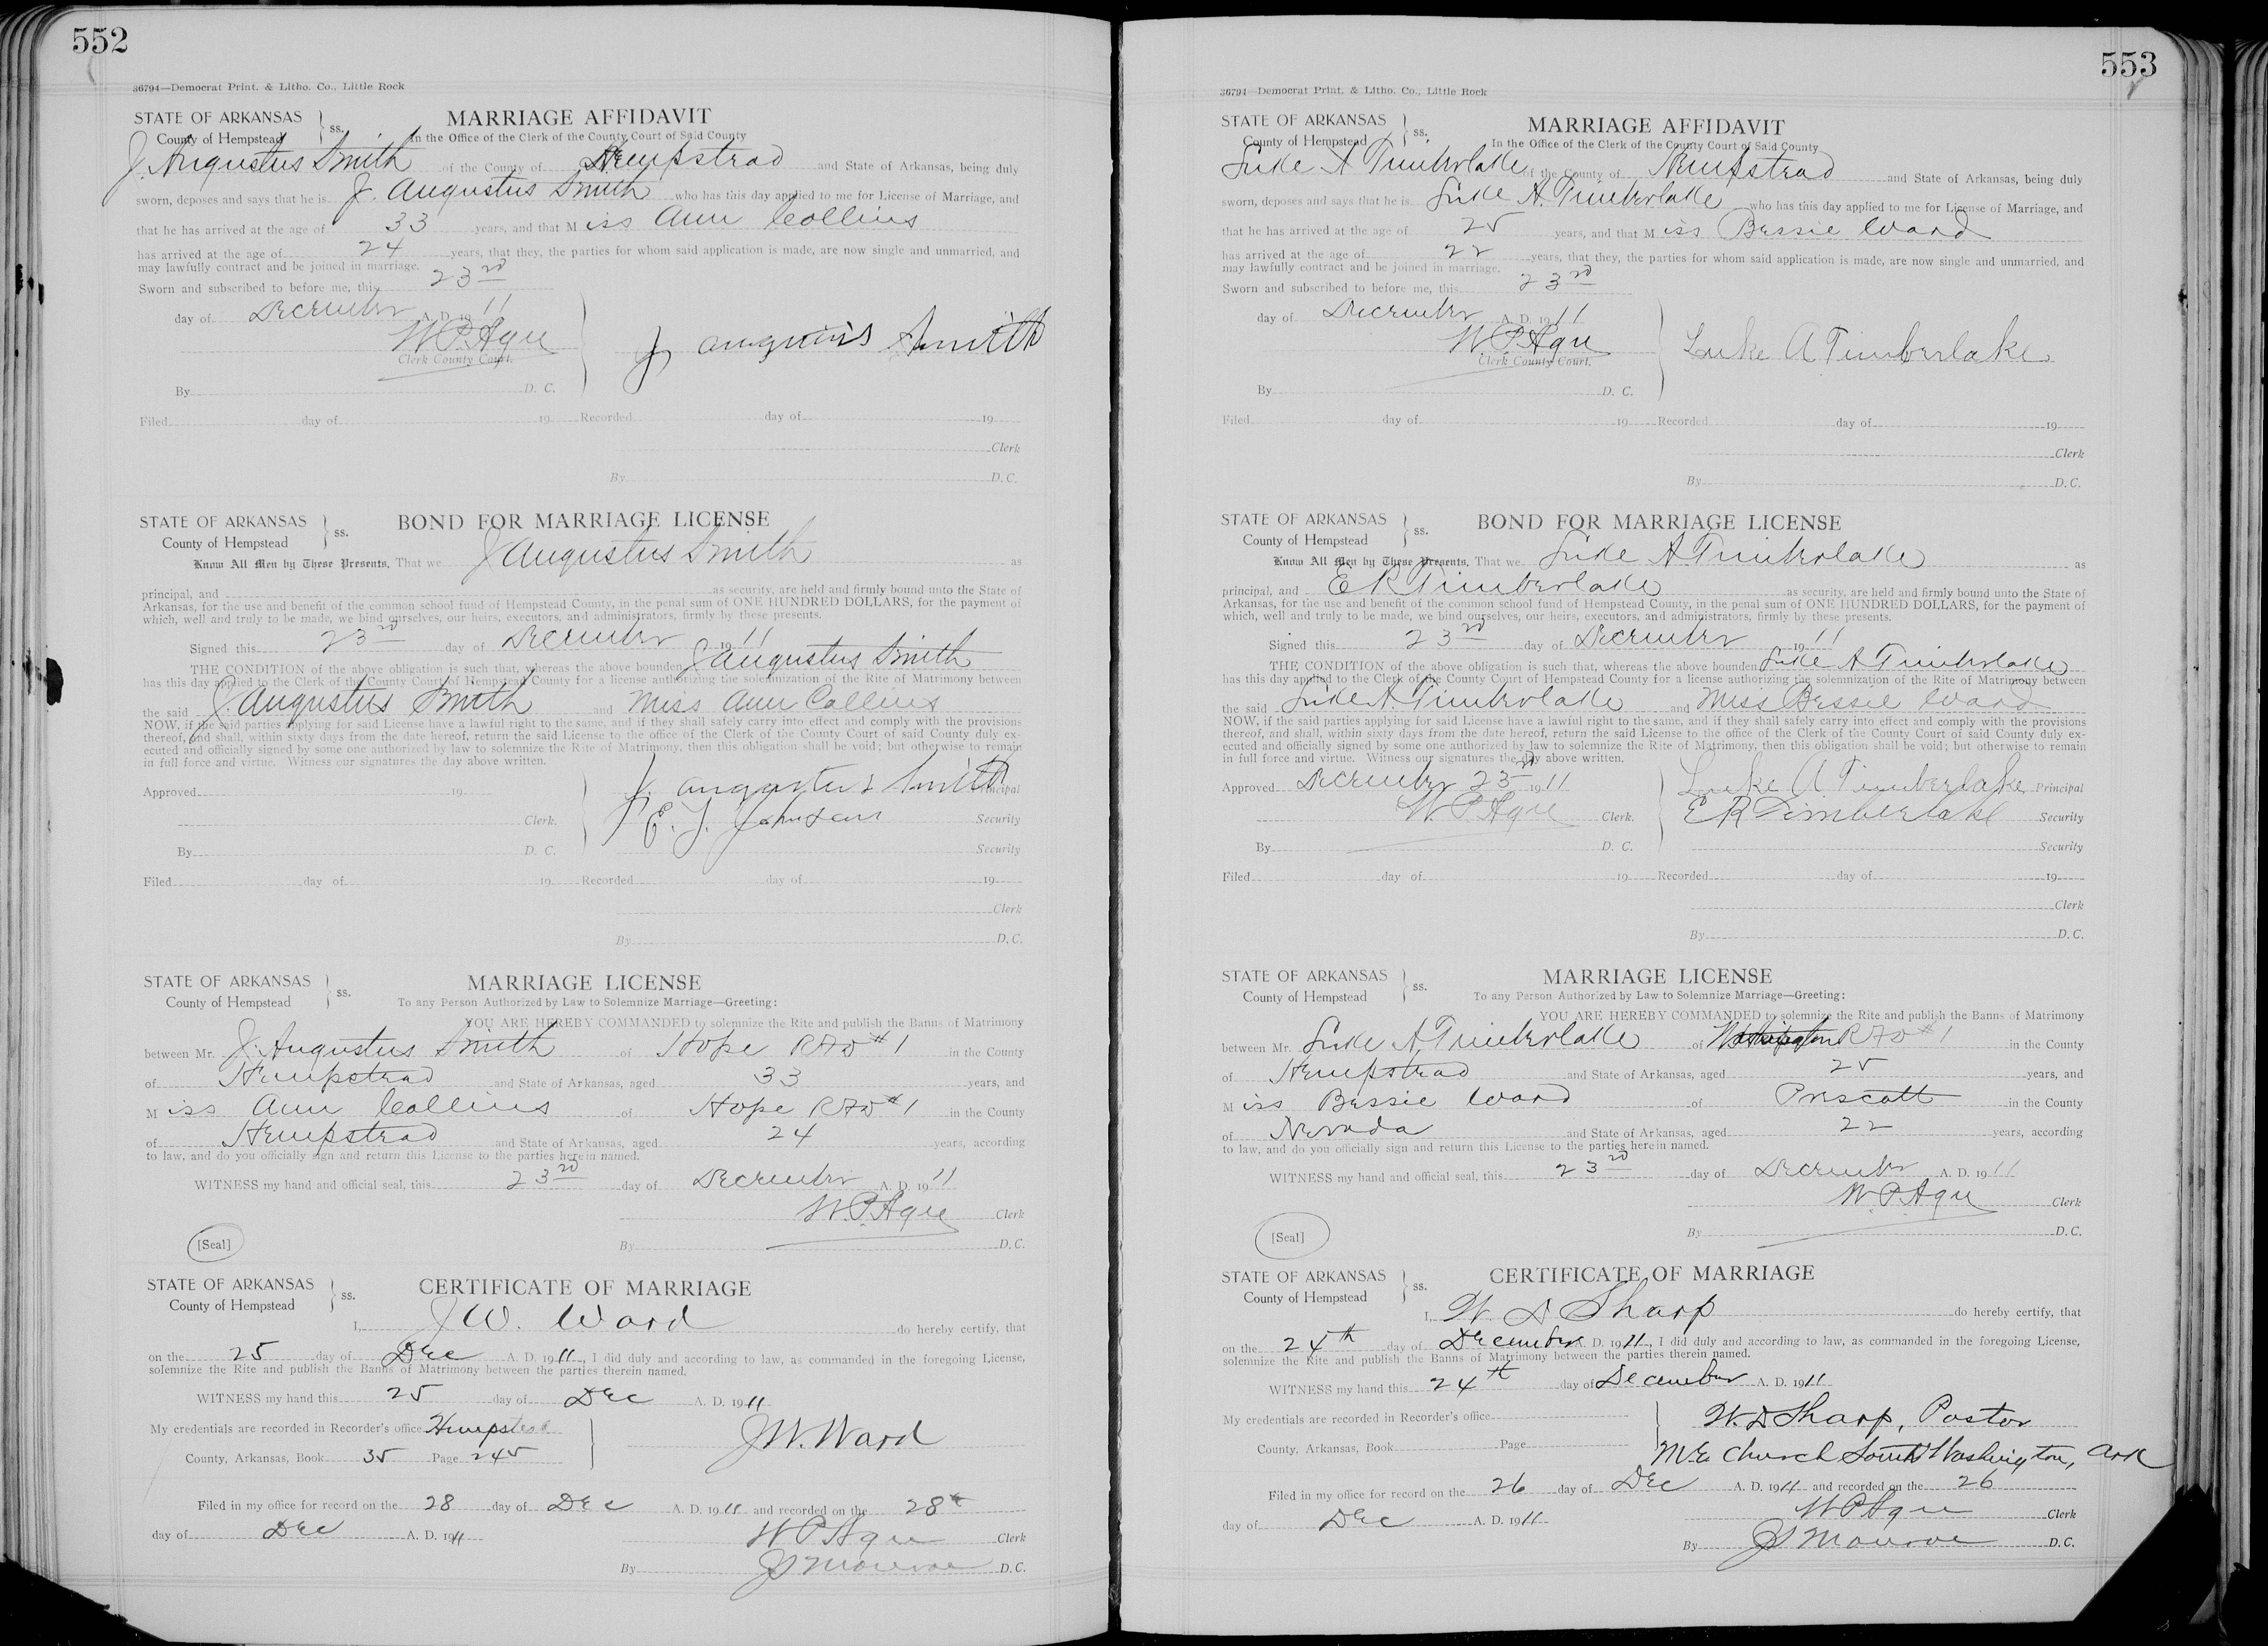 552
36794—Democrat Print. & Litho. Co., Little Rock
STATE OF ARKANSAS
County of Hempstead
ss.
MARRIAGE AFFIDAVIT
In the Office of the Clerk of the County Court of Said County
J. Augustus Smith of the County of Hempstead and State of Arkansas, being duly
sworn, deposes and says that he is J. Augustus Smith who has this day applied to me for License of Marriage, and
that he has arrived at the age of 33 years, and that Miss Ann Collins
has arrived at the age of 24 years, that they, the parties for whom said application is made, are now single and unmarried, and
may lawfully contract and be joined in marriage.
Sworn and subscribed to before me, this 23rd
day of December A. D. 1911
W. P. Agee
Clerk County Court.
J augustus Smith
By D. C.
Filed day of 19 Recorded day of 19
Clerk
By D. C.
STATE OF ARKANSAS
County of Hempstead
ss.
BOND FOR MARRIAGE LICENSE
Know All Men by These Presents, That we J Augustus Smith as
principal, and as security, are held and firmly bound unto the State of
Arkansas, for the use and benefit of the common school fund of Hempstead County, in the penal sum of ONE HUNDRED DOLLARS, for the payment of
which, well and truly to be made, we bind ourselves, our heirs, executors, and administrators, firmly by these presents.
Signed this 23rd day of December 1911
THE CONDITION of the above obligation is such that, whereas the above bounden J Augustus Smith
has this day applied to the Clerk of the County Court of Hempstead County for a license authorizing the solemnization of the Rite of Matrimony between
the said J. Augustus Smith and Miss Ann Collins
NOW, if the said parties applying for said License have a lawful right to the same, and if they shall safely carry into effect and comply with the provisions
thereof, and shall, within sixty days from the date hereof, return the said License to the office of the Clerk of the County Court of said County duly ex-
ecuted and officially signed by some one authorized by law to solemnize the Rite of Matrimony, then this obligation shall be void; but otherwise to remain
in full force and virtue. Witness our signatures the day above written.
Approved 19
J. augustus Smith Principal
Clerk.
E. J. Johnson Security
By D. C.
Security
Filed day of 19 Recorded day of 19
Clerk
By D. C.
STATE OF ARKANSAS
County of Hempstead
ss.
MARRIAGE LICENSE
To any Person Authorized by Law to Solemnize Marriage—Greeting:
YOU ARE HEREBY COMMANDED to solemnize the Rite and publish the Banns of Matrimony
between Mr. J. Augustus Smith of Hope RFD #1 in the County
of Hempstead and State of Arkansas, aged 33 years, and
Miss Ann Collins of Hope RFD #1 in the County
of Hempstead and State of Arkansas, aged 24 years, according
to law, and do you officially sign and return this License to the parties herein named.
WITNESS my hand and official seal, this 23rd day of December A. D. 1911
W. P. Agee Clerk
[Seal]
By D. C.
STATE OF ARKANSAS
County of Hempstead
ss.
CERTIFICATE OF MARRIAGE
I, J W. Ward do hereby certify, that
on the 25 day of Dec A. D. 1911, I did duly and according to law, as commanded in the foregoing License,
solemnize the Rite and publish the Banns of Matrimony between the parties therein named.
WITNESS my hand this 25 day of Dec A. D. 1911
My credentials are recorded in Recorder's office Hempstead
J.W. Ward
County, Arkansas, Book 35 Page 245
Filed in my office for record on the 28 day of Dec A. D. 1911 and recorded on the 28th
day of Dec A. D. 1911
W P Agee Clerk
By JS Monroe D. C.
553
36794—Democrat Print. & Litho. Co., Little Rock
STATE OF ARKANSAS
County of Hempstead
ss.
MARRIAGE AFFIDAVIT
In the Office of the Clerk of the County Court of Said County
Luke A Timberlake of the County of Hempstead and State of Arkansas, being duly
sworn, deposes and says that he is Luke A. Timberlake who has this day applied to me for License of Marriage, and
that he has arrived at the age of 25 years, and that Miss Bessie Ward
has arrived at the age of 22 years, that they, the parties for whom said application is made, are now single and unmarried, and
may lawfully contract and be joined in marriage.
Sworn and subscribed to before me, this 23rd
day of December A. D. 1911
W. P. Agee
Clerk County Court.
Luke A Timberlake
By D. C.
Filed day of 19 Recorded day of 19
Clerk
By D. C.
STATE OF ARKANSAS
County of Hempstead
ss.
BOND FOR MARRIAGE LICENSE
Know All Men by These Presents, That we Luke A. Timberlake as
principal, and E R Timberlake as security, are held and firmly bound unto the State of
Arkansas, for the use and benefit of the common school fund of Hempstead County, in the penal sum of ONE HUNDRED DOLLARS, for the payment of
which, well and truly to be made, we bind ourselves, our heirs, executors, and administrators, firmly by these presents.
Signed this 23rd day of December 1911
THE CONDITION of the above obligation is such that, whereas the above bounden Luke A Timberlake
has this day applied to the Clerk of the County Court of Hempstead County for a license authorizing the solemnization of the Rite of Matrimony between
the said Luke A. Timberlake and Miss Bessie Ward
NOW, if the said parties applying for said License have a lawful right to the same, and if they shall safely carry into effect and comply with the provisions
thereof, and shall, within sixty days from the date hereof, return the said License to the office of the Clerk of the County Court of said County duly ex-
ecuted and officially signed by some one authorized by law to solemnize the Rite of Matrimony, then this obligation shall be void; but otherwise to remain
in full force and virtue. Witness our signatures the day above written.
Approved December 23rd 1911
Luke A Timberlake Principal
W P Agee Clerk.
E R Timberlake Security
By D. C.
Security
Filed day of 19 Recorded day of 19
Clerk
By D. C.
STATE OF ARKANSAS
County of Hempstead
ss.
MARRIAGE LICENSE
To any Person Authorized by Law to Solemnize Marriage—Greeting:
YOU ARE HEREBY COMMANDED to solemnize the Rite and publish the Banns of Matrimony
between Mr. Luke A. Timberlake of Washington RFD #1 in the County
of Hempstead and State of Arkansas, aged 25 years, and
Miss Bessie Ward of Prescott in the County
of Nevada and State of Arkansas, aged 22 years, according
to law, and do you officially sign and return this License to the parties herein named.
WITNESS my hand and official seal, this 23rd day of December A. D. 1911
W. P. Agee Clerk
[Seal]
By D. C.
STATE OF ARKANSAS
County of Hempstead
ss.
CERTIFICATE OF MARRIAGE
I, W. D Sharp do hereby certify, that
on the 24th day of December A. D. 1911, I did duly and according to law, as commanded in the foregoing License,
solemnize the Rite and publish the Banns of Matrimony between the parties therein named.
WITNESS my hand this 24th day of December A. D. 1911
My credentials are recorded in Recorder's office
W. D Sharp, Pastor
County, Arkansas, Book Page
M. E. Church South Washington, Ark
Filed in my office for record on the 26 day of Dec A. D. 1911 and recorded on the 26
day of Dec A. D. 1911
W P Agee Clerk
By JS Monroe D. C.